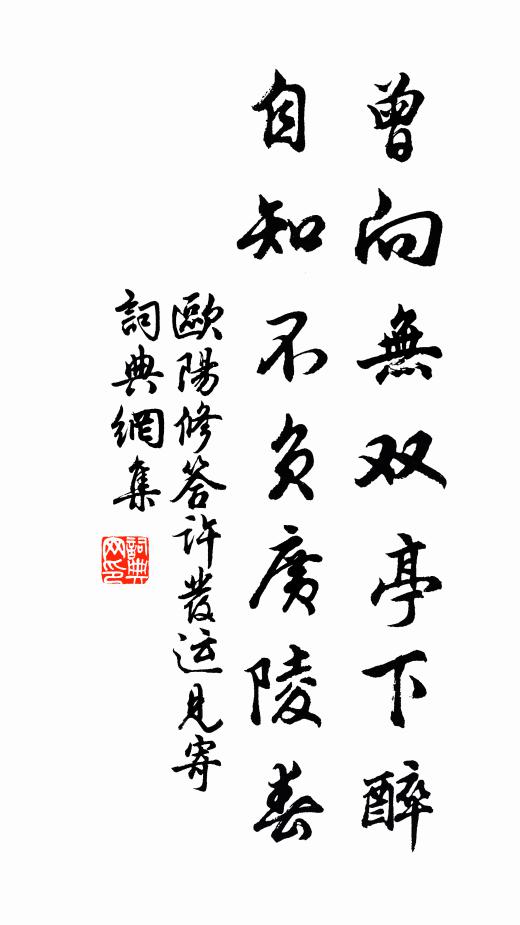 曾向無双亭下醉
自知不负廣陵春
歐陽修答许發运見寄
詞典網集
詞典網印